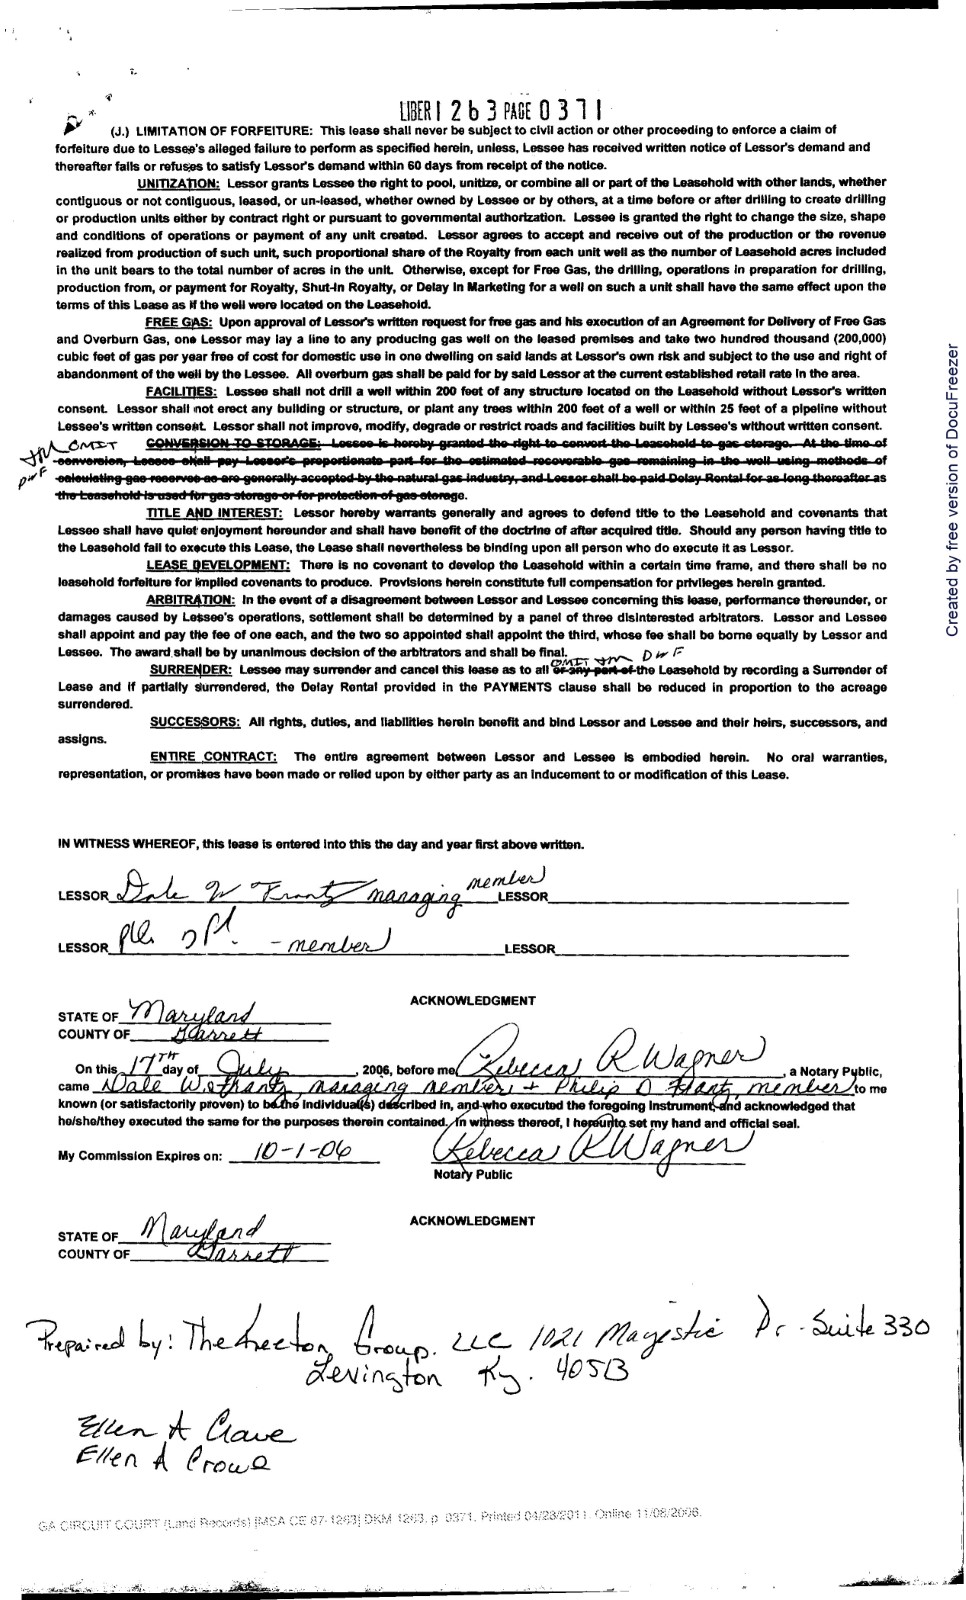 LIBER 1 2 6 3 PAGE 0 3 7 1
(J.) LIMITATION OF FORFEITURE: This lease shall never be subject to civil action or other proceeding to enforce a claim of
forfeiture due to Lessee's alleged failure to perform as specified herein, unless, Lessee has received written notice of Lessor's demand and
thereafter fails or refuses to satisfy Lessor's demand within 60 days from receipt of the notice.
UNITIZATION: Lessor grants Lessee the right to pool, unitize, or combine all or part of the Leasehold with other lands, whether
contiguous or not contiguous, leased, or un-leased, whether owned by Lessee or by others, at a time before or after drilling to create drilling
or production units either by contract right or pursuant to governmental authorization. Lessee is granted the right to change the size, shape
and conditions of operations or payment of any unit created. Lessor agrees to accept and receive out of the production or the revenue
realized from production of such unit, such proportional share of the Royalty from each unit well as the number of Leasehold acres included
in the unit bears to the total number of acres in the unit. Otherwise, except for Free Gas, the drilling, operations in preparation for drilling,
production from, or payment for Royalty, Shut-In Royalty, or Delay In Marketing for a well on such a unit shall have the same effect upon the
terms of this Lease as if the well were located on the Leasehold.
FREE GAS: Upon approval of Lessor's written request for free gas and his execution of an Agreement for Delivery of Free Gas
and Overburn Gas, one Lessor may lay a line to any producing gas well on the leased premises and take two hundred thousand (200,000)
cubic feet of gas per year free of cost for domestic use in one dwelling on said lands at Lessor's own risk and subject to the use and right of
abandonment of the well by the Lessee. All overburn gas shall be paid for by said Lessor at the current established retail rate in the area.
FACILITIES: Lessee shall not drill a well within 200 feet of any structure located on the Leasehold without Lessor's written
consent. Lessor shall not erect any building or structure, or plant any trees within 200 feet of a well or within 25 feet of a pipeline without
Lessee's written consent. Lessor shall not improve, modify, degrade or restrict roads and facilities built by Lessee's without written consent.
OMIT CONVERSION TO STORAGE: Lessee is hereby granted the right to convert the Leasehold to gas storage. At the time of
conversion, Lessee shall pay Lessor's proportionate part for the estimated recoverable gas remaining in the well using methods of
DWF calculating gas reserves as are generally accepted by the natural gas industry, and Lessor shall be paid Delay Rental for as long thereafter as
the Leasehold is used for gas storage or for protection of gas storage.
TITLE AND INTEREST: Lessor hereby warrants generally and agrees to defend title to the Leasehold and covenants that
Lessee shall have quiet enjoyment hereunder and shall have benefit of the doctrine of after acquired title. Should any person having title to
the Leasehold fail to execute this Lease, the Lease shall nevertheless be binding upon all person who do execute it as Lessor.
LEASE DEVELOPMENT: There is no covenant to develop the Leasehold within a certain time frame, and there shall be no
leasehold forfeiture for implied covenants to produce. Provisions herein constitute full compensation for privileges herein granted.
ARBITRATION: In the event of a disagreement between Lessor and Lessee concerning this lease, performance thereunder, or
damages caused by Lessee's operations, settlement shall be determined by a panel of three disinterested arbitrators. Lessor and Lessee
shall appoint and pay the fee of one each, and the two so appointed shall appoint the third, whose fee shall be borne equally by Lessor and
Lessee. The award shall be by unanimous decision of the arbitrators and shall be final.
OMIT DWF
SURRENDER: Lessee may surrender and cancel this lease as to all or any part of the Leasehold by recording a Surrender of
Lease and if partially surrendered, the Delay Rental provided in the PAYMENTS clause shall be reduced in proportion to the acreage
surrendered.
SUCCESSORS: All rights, duties, and liabilities herein benefit and bind Lessor and Lessee and their heirs, successors, and
assigns.
ENTIRE CONTRACT: The entire agreement between Lessor and Lessee is embodied herein. No oral warranties,
representation, or promises have been made or relied upon by either party as an inducement to or modification of this Lease.
IN WITNESS WHEREOF, this lease is entered into this the day and year first above written.
LESSOR Dale W Frantz managing member LESSOR
LESSOR - member LESSOR
ACKNOWLEDGMENT
STATE OF Maryland
COUNTY OF Garrett
On this 17TH day of July, 2006, before me Rebecca R Wagner, a Notary Public,
came Dale W Frantz, managing member + Philip D Frantz, member to me
known (or satisfactorily proven) to be the individual(s) described in, and who executed the foregoing instrument, and acknowledged that
he/she/they executed the same for the purposes therein contained. In witness thereof, I hereunto set my hand and official seal.
My Commission Expires on: 10-1-06 Rebecca R Wagner
Notary Public
ACKNOWLEDGMENT
STATE OF Maryland
COUNTY OF Garrett
Prepared by: The Keeton Group. LLC 1021 Magestic Dr - Suite 330
Lexington Ky. 40513
Ellen A Crowe
Ellen A Crowe
GA CIRCUIT COURT (Land Records) [MSA CE 87-1263] DKM 1263, p. 0371. Printed 04/23/2011. Online 11/08/2006.
Created by free version of DocuFreezer